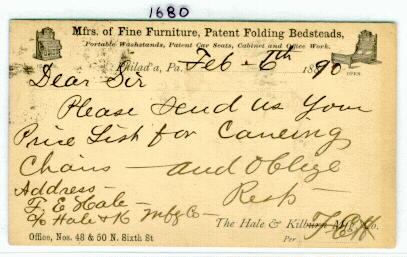 1680
Mfrs. of Fine Furniture, Patent Folding Bedsteads,
Portable Washstands, Patent Car Seats, Cabinet and Office Work.
Philad'a, Pa. Feb - 6th 1890
OPEN.
Dear Sir
Please Send us Your
Price List for Caneing
Chairs — and Oblige
Address — Resp —
F. E. Hale —
c/o Hale & K Mfg Co —
The Hale & Kilburn Mfg. Co.
Office, Nos. 48 & 50 N. Sixth St
Per F E H